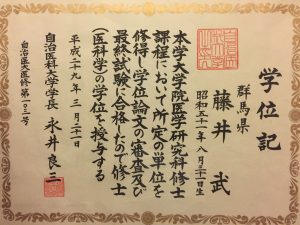 学位記
群馬県
藤井 武
昭和五十一年八月二十一日生
本学大学院医学研究科修士
課程において所定の単位を
修得し学位論文の審査及び
最終試験に合格したので修士
(医科学)の学位を授与する
平成二十九年三月二十一日
自治医科大学学長 永井良三
自治医大医修第一〇二号